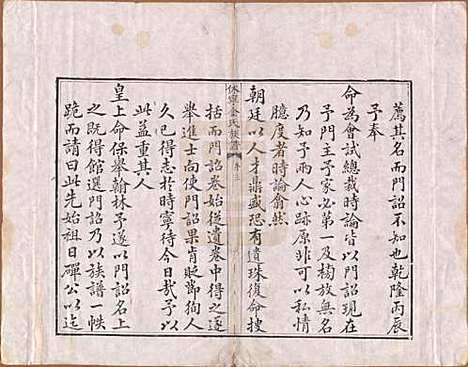 薦其名而門詔不知也乾隆丙辰
予奉
命為會試總裁時論皆以門詔現在
予門主予家必第一及榜放無名
乃知予兩人心跡原非可以私情
臆度者時論翕然
朝廷以人才鼎盛恐有遺珠復命搜
休寧金氏族譜
卷三
括而門詔卷始從遺卷中得之遂
舉進士向使門詔果肯貶節徇人
久已得志於時寧待今日哉予以
此益重其人
皇上命保舉翰林予遂以門詔名上
之既得館選門詔乃以族譜一帙
跪而請曰此先始祖日磾公以迄